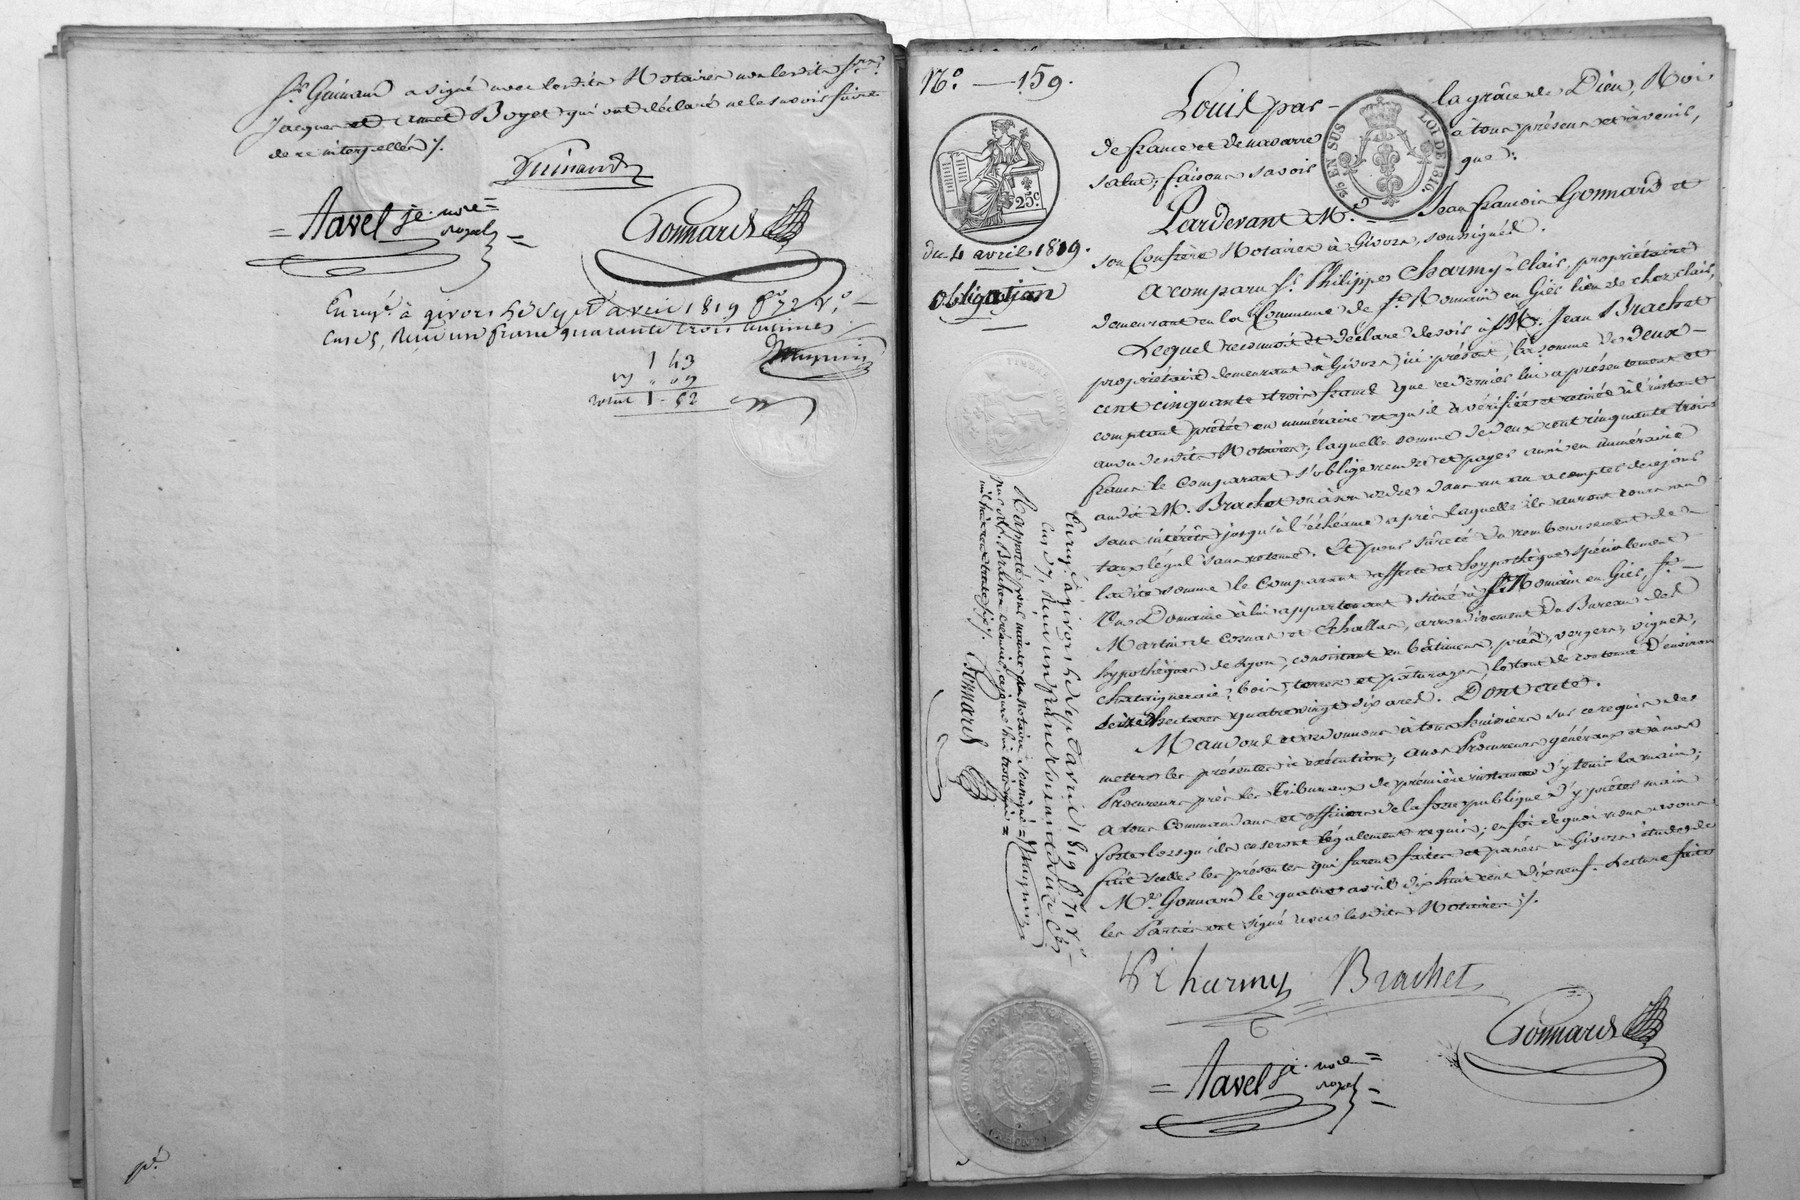 Sr. Guinand a signé avec lesdits Notaires non lesdits Srs.
Jacques et Boyet qui ont déclaré ne le savoir faire
de ce interpellés ./.
Guinand
= Tavel je. nore =
royal =
Gonnard
Enregé. à givors le sept avril 1819 fo. 72 vo.
case 5, Reçu un franc quarante trois centimes
1 43
" 09
total 1 - 52
No. — 159.
Louis par la grâce de Dieu, Roi
de france et de navarre à tous présens et à venir,
salut; faisons savoir que:
25 EN SUS
LOI DE 1816.
25c.
du 4 avril 1819.
Obligation
Pardevant Me. Jean françois Gonnard et
son Confrère Notaires à Givors, soussignés.
A comparu Sr. Philippe Charmy-Clair, propriétaire
demeurant en la Commune de St. Romain en Gier lieu de
Lequel reconnoit et déclare devoir à M. Jean Brachet
propriétaire demeurant à Givors, ici présent, la somme de deux
cent cinquante trois francs que ce dernier lui a présentement et
comptant prêtée en numéraire et qu'il a vérifiée et retirée à l'instant
au vu desdits Notaires; laquelle somme de deux cent cinquante trois
francs le Comparant s'oblige rendre et payer aussi en numéraire
audit M. Brachet ou à son ordre dans un an à compter de ce jour
sans intérêts jusqu'à l'échéance après laquelle ils auront cours au
taux légal sans retenue. Et pour sûreté du remboursement de
ladite somme le Comparant affecte et hypothèque spécialement
Un Domaine à lui appartenant situé à St. Romain en Gier, St.
Martin de Cornas et Chassas, arrondissement du Bureau des
hypothèques de Lyon, consistant en bâtimens, prés, vergers, vignes,
chataigneraie, bois, terres et paturages, le tout de contenue d'environ
seize hectares quatre vingt dix ares. Dont acte.
Mandons et ordonnons à tous huissiers sur ce requis de
mettre les présentes à exécution; à nos Procureurs généraux et à nos
Procureurs près les Tribunaux de première instance d'y tenir la main;
à tous Commandans et officiers de la force publique d'y prêter main
forte lorsqu'ils en seront légalement requis; en foi de quoi nous avons
fait sceller les présentes qui furent faites et passées à Givors étude de
Me. Gonnard le quatre avril dix huit cent dix neuf. Lecture faite
les Parties ont signé avec lesdits Notaires ./.
Ph Charmy
Brachet
= Tavel je. nore =
royal =
Gonnard
Enregé. à givors le sept avril 1819 fo. 71 vo.
case 7, Reçu un franc
Rapporté pour minute au Notaire soussigné
par M. Brachet créancier cejourd'hui trois
mil huit cent trente six ./. Gonnard